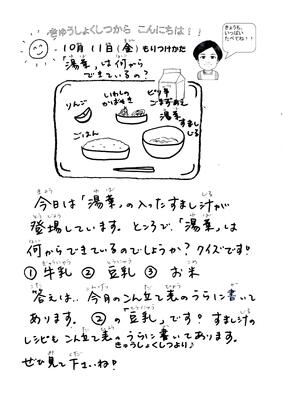 きゅうしょくしつから こんにちは!!
きょうも、
いっぱい
たべてね!!
10月11日(金) もりつけかた
「湯葉」は何から
できているの?
りんご
いわしの
かばやき
ピリ辛
ごまずあえ
湯葉
すまし
じる
ごはん
今日は「湯葉」の入ったすまし汁が
登場しています。ところで、「湯葉」は
何からできているのでしょうか?クイズです!
①牛乳 ②豆乳 ③お米
答えは‥今月のこんだて表のうらに書いて
あります。②の「豆乳」です!すまし汁の
レシピもこんだて表のうらに書いてあります。
ぜひ見て下さいね!
きゅうしょくしつより♪